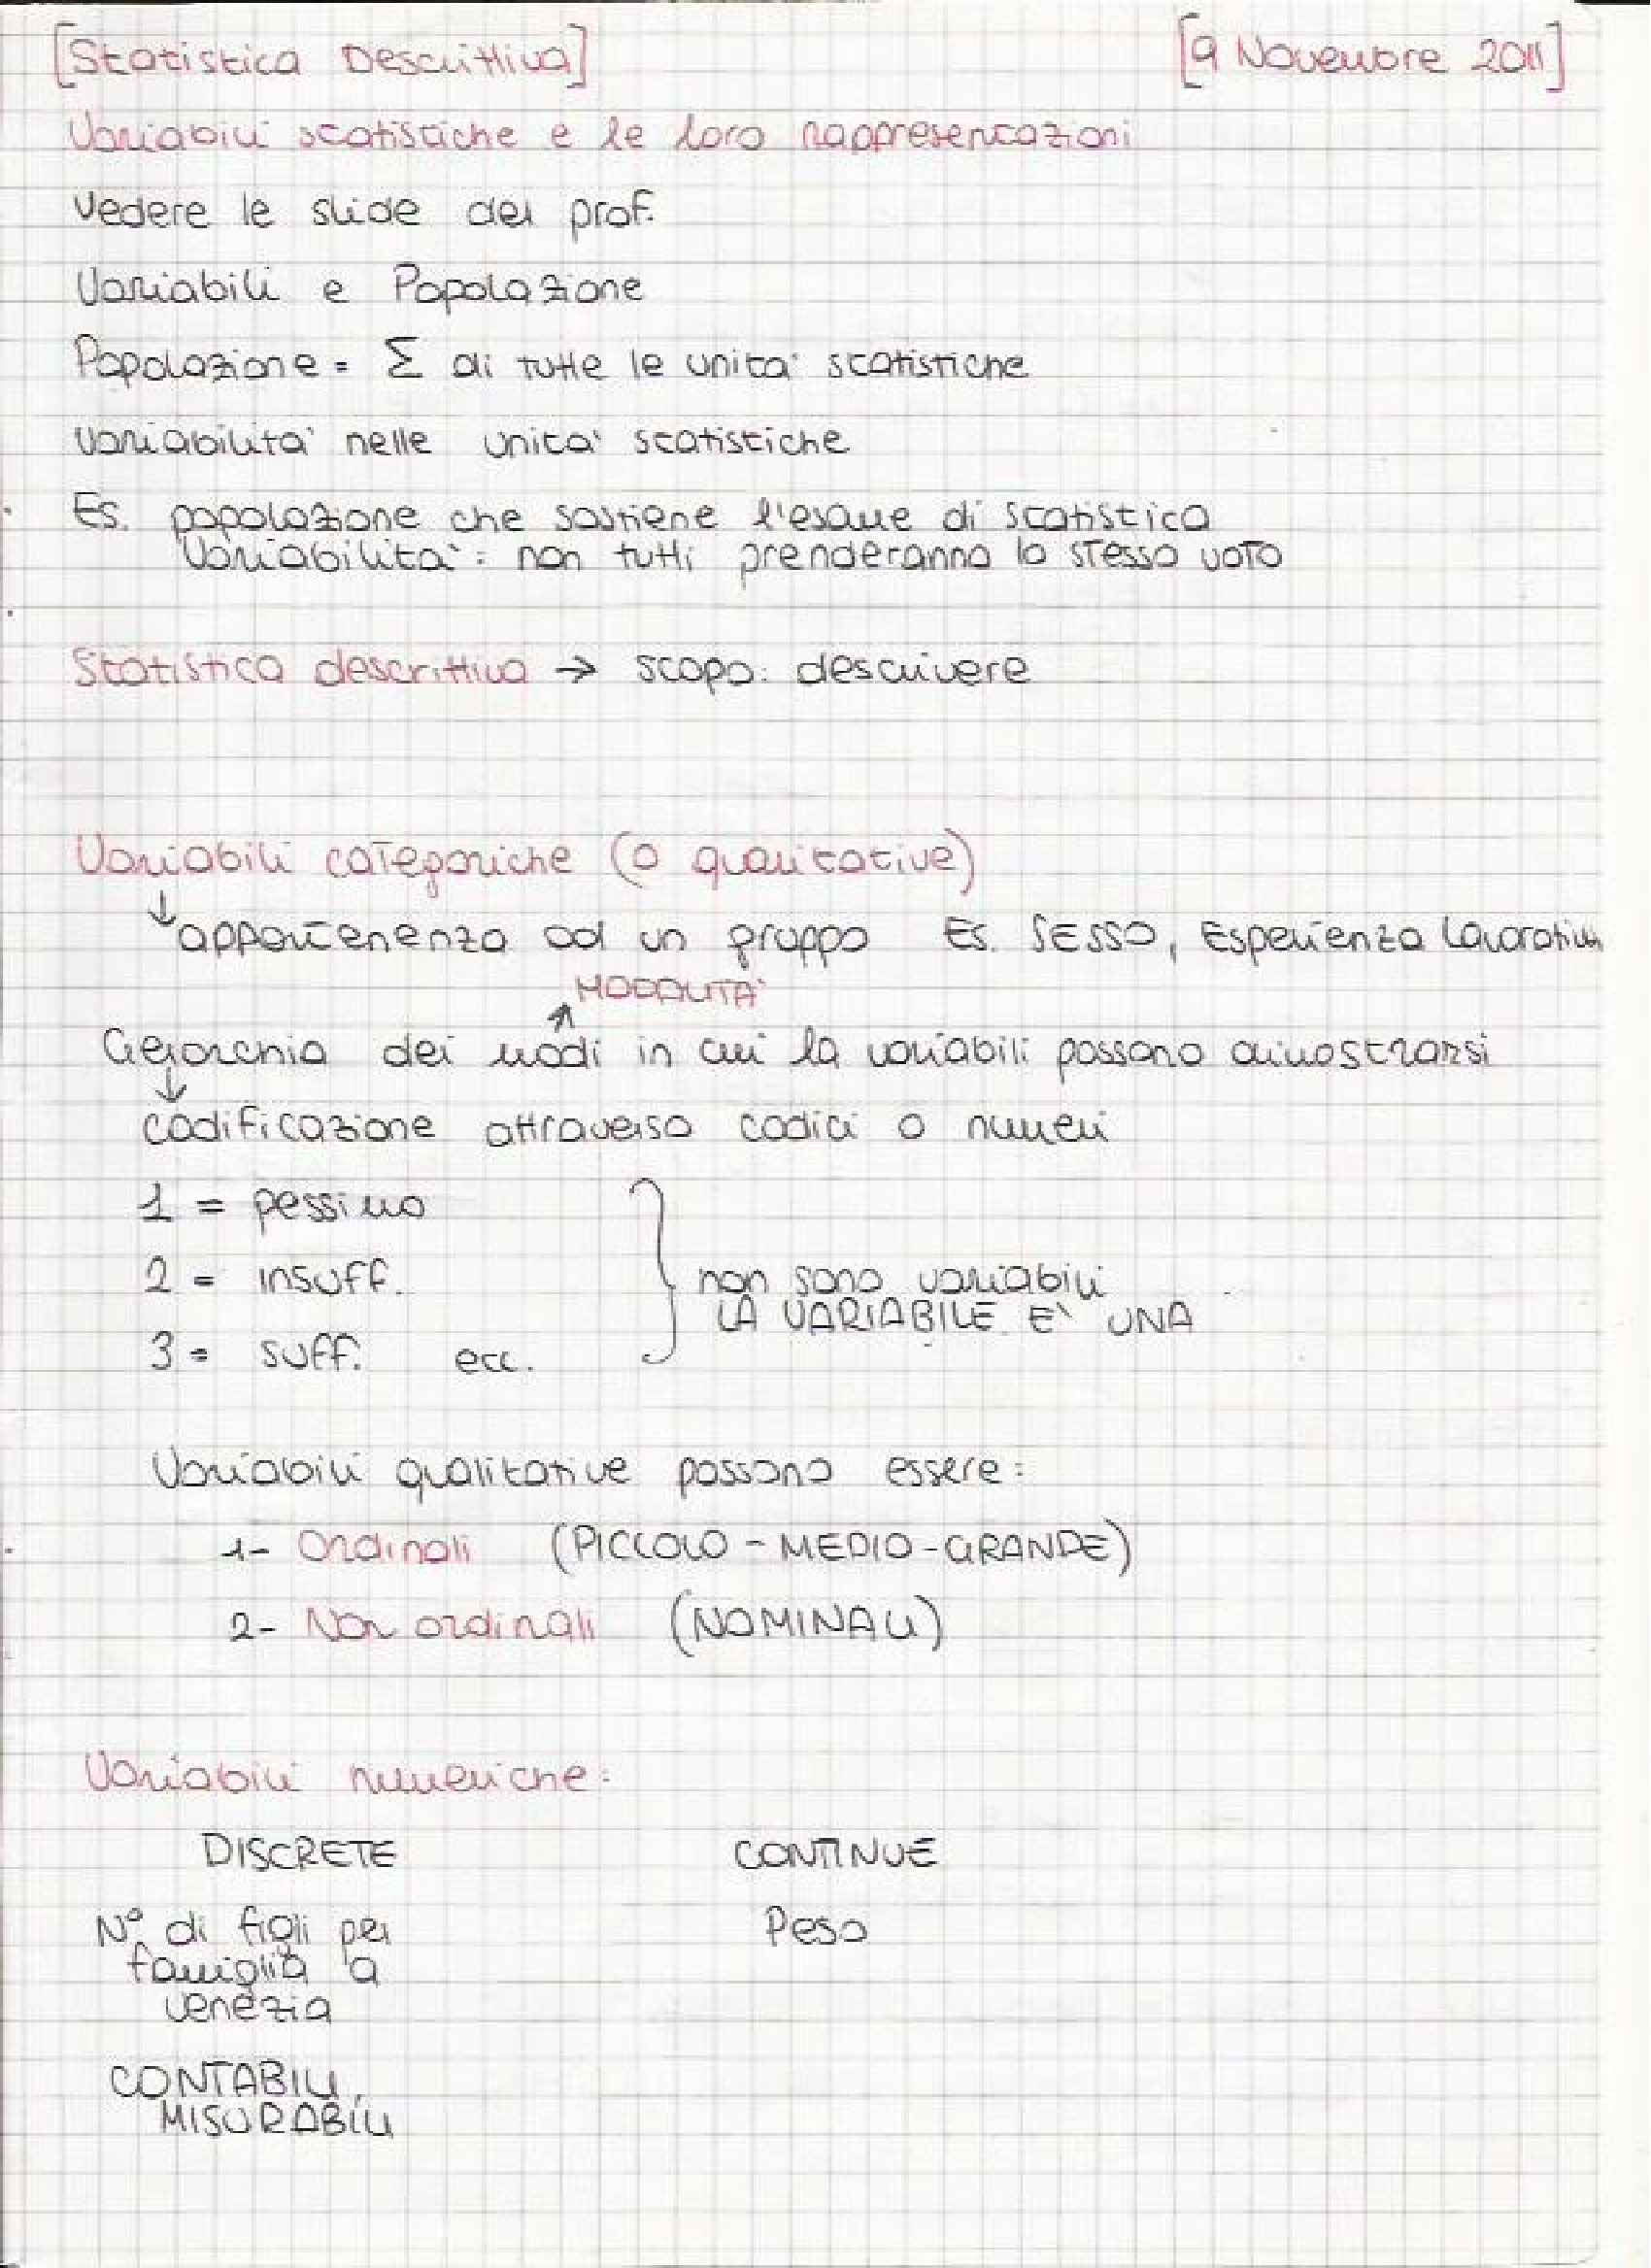 [Statistica Descrittiva] [9 Novembre 2011]
Variabili statistiche e le loro rappresentazioni
Vedere le slide del prof.
Variabili e Popolazione
Popolazione = Σ di tutte le unita' statistiche
Variabilita' nelle unita' statistiche
Es. popolazione che sostiene l'esame di statistica
Variabilita': non tutti prenderanno lo stesso voto
Statistica descrittiva → scopo: descrivere
Variabili categoriche (o qualitative)
↓ appartenenza ad un gruppo Es. SESSO, Esperienza Lavorativa
MODALITA'
↑
Gerarchia dei modi in cui la variabili possono dimostrarsi
↓
codificazione attraverso codici o numeri
1 = pessimo
2 = insuff.
3 = suff. ecc.
} non sono variabili
LA VARIABILE E' UNA
Variabili qualitative possono essere:
1- Ordinali (PICCOLO - MEDIO - GRANDE)
2- Non ordinali (NOMINALI)
Variabili numeriche:
DISCRETE CONTINUE
N° di figli per Peso
famiglia a
Venezia
CONTABILI,
MISURABILI